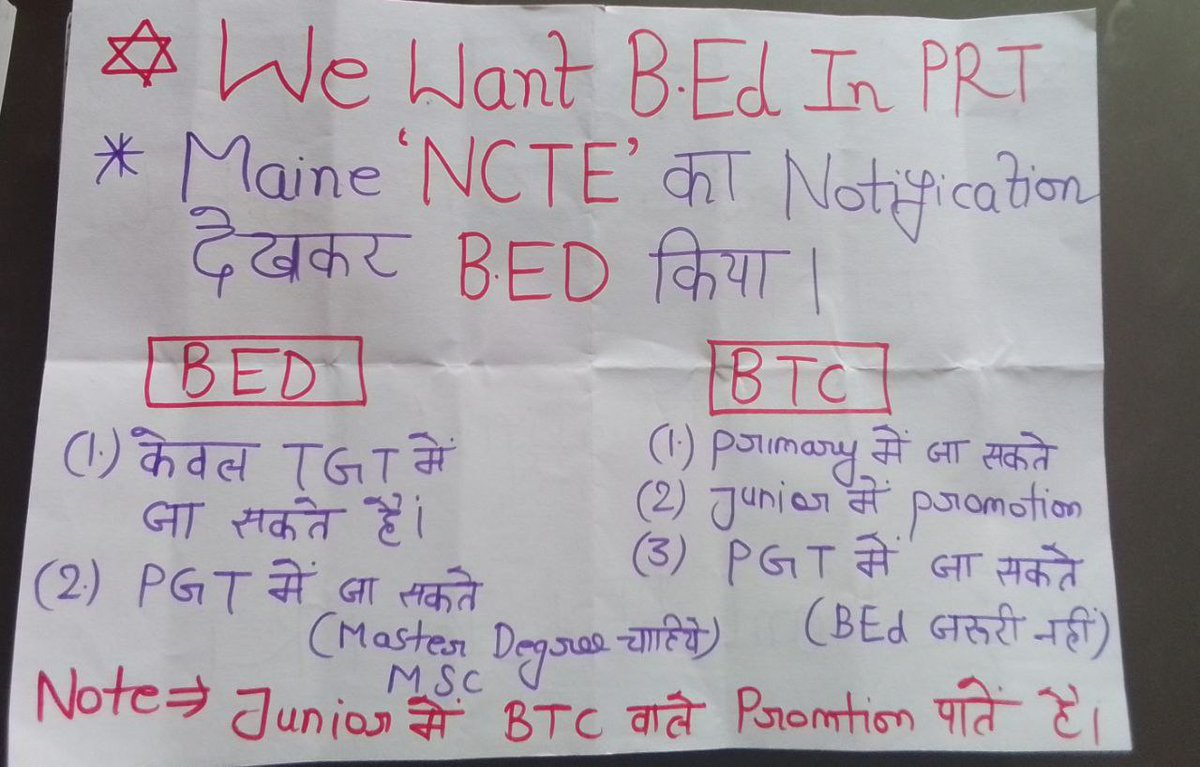 We Want B.Ed In PRT
* Maine 'NCTE' का Notification
देखकर B.ED किया।
BED
(1.) केवल TGT में
जा सकते है।
(2.) PGT में जा सकते
(Master Degree चाहिये)
MSC
BTC
(1.) primary में जा सकते
(2) Junior में promotion
(3) PGT में जा सकते
(BEd जरुरी नहीं)
Note⇒ Junior में BTC वाले Promtion पातें है।